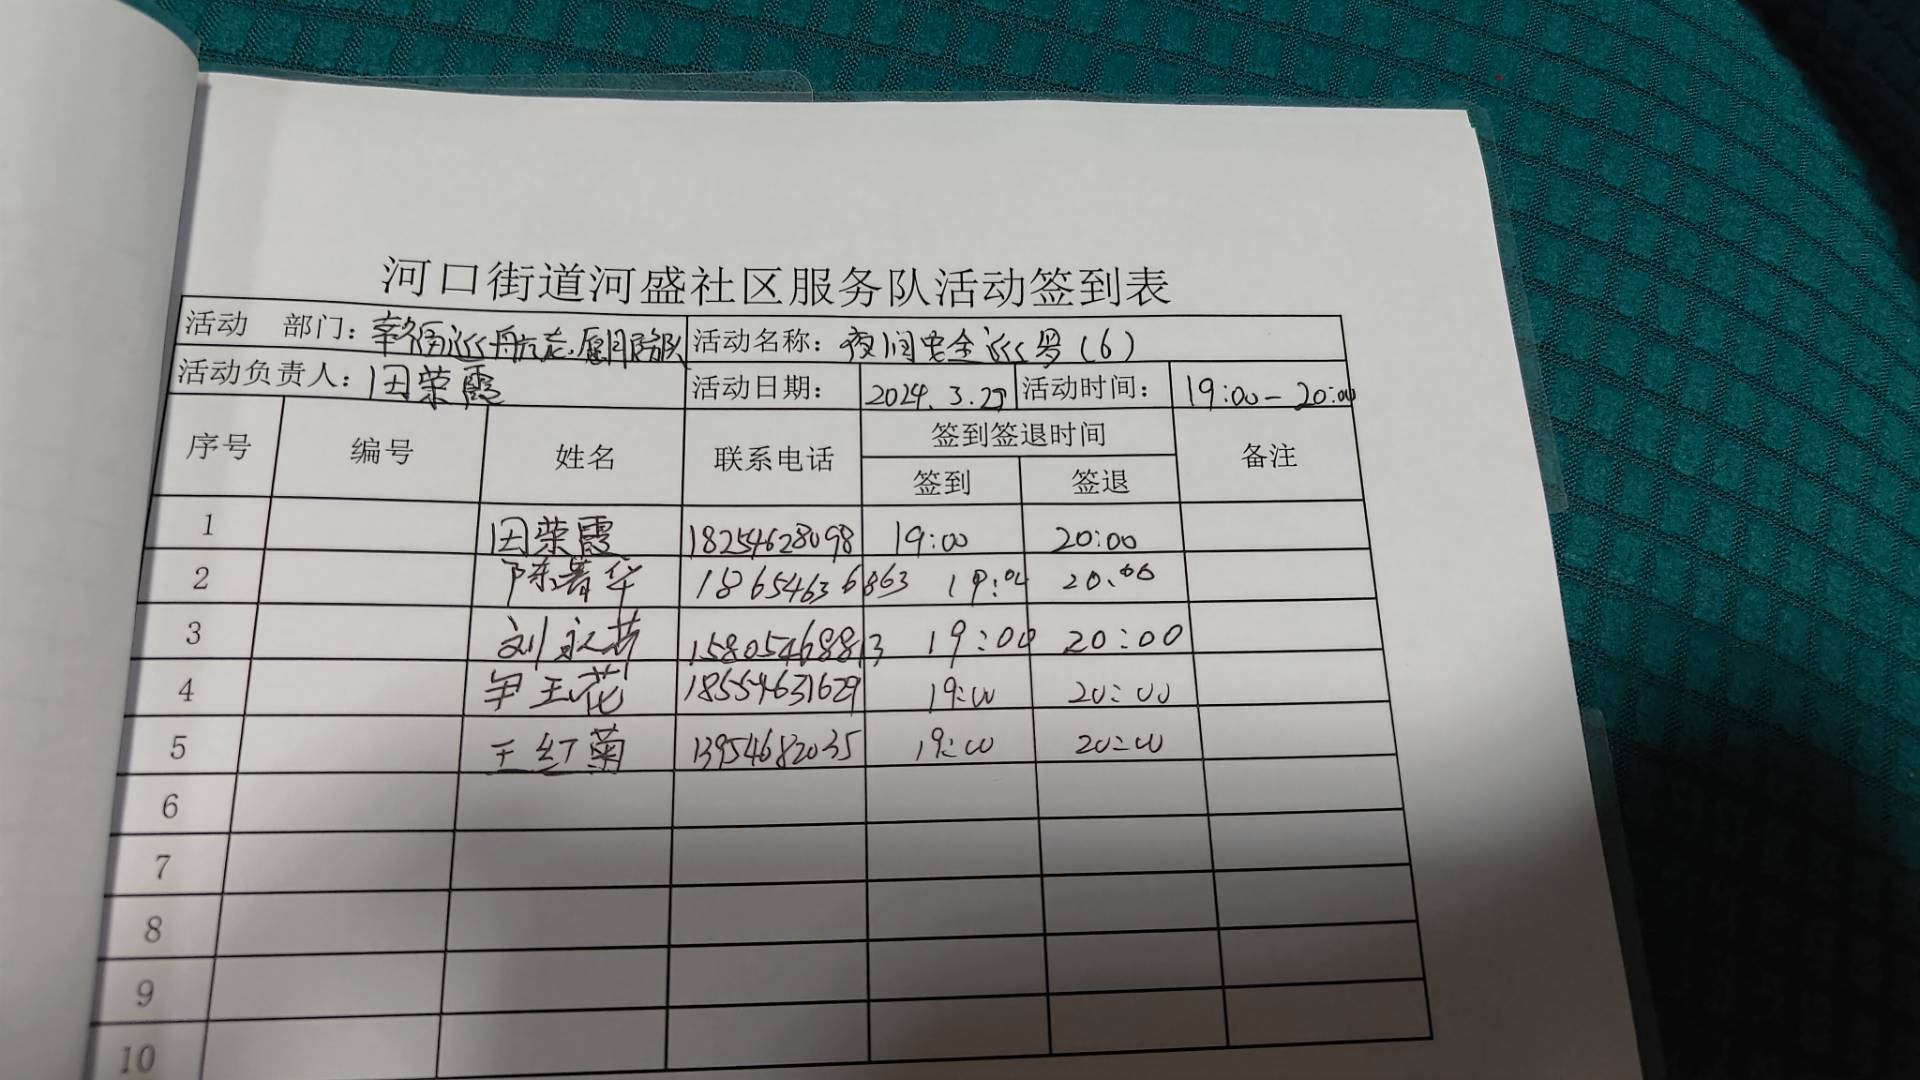 河口街道河盛社区服务队活动签到表
活动 部门: 幸福巡航志愿服务队 活动名称: 夜间安全巡(6)
活动负责人: 田荣霞 活动日期: 2024.3.27 活动时间: 19:00-20:00
序号 编号 姓名 联系电话 签到签退时间 备注
签到 签退
1 田荣霞 18254628098 19:00 20:00
2 陈华 18654636863 19:00 20:00
3 刘永芳 15805468813 19:00 20:00
4 尹玉花 18554631629 19:00 20:00
5 王红菊 13954682035 19:00 20:00
6
7
8
9
10